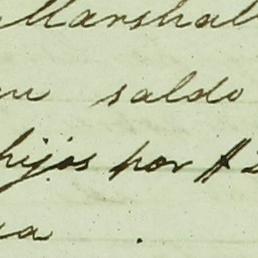 Marshall
saldo
hijos por $